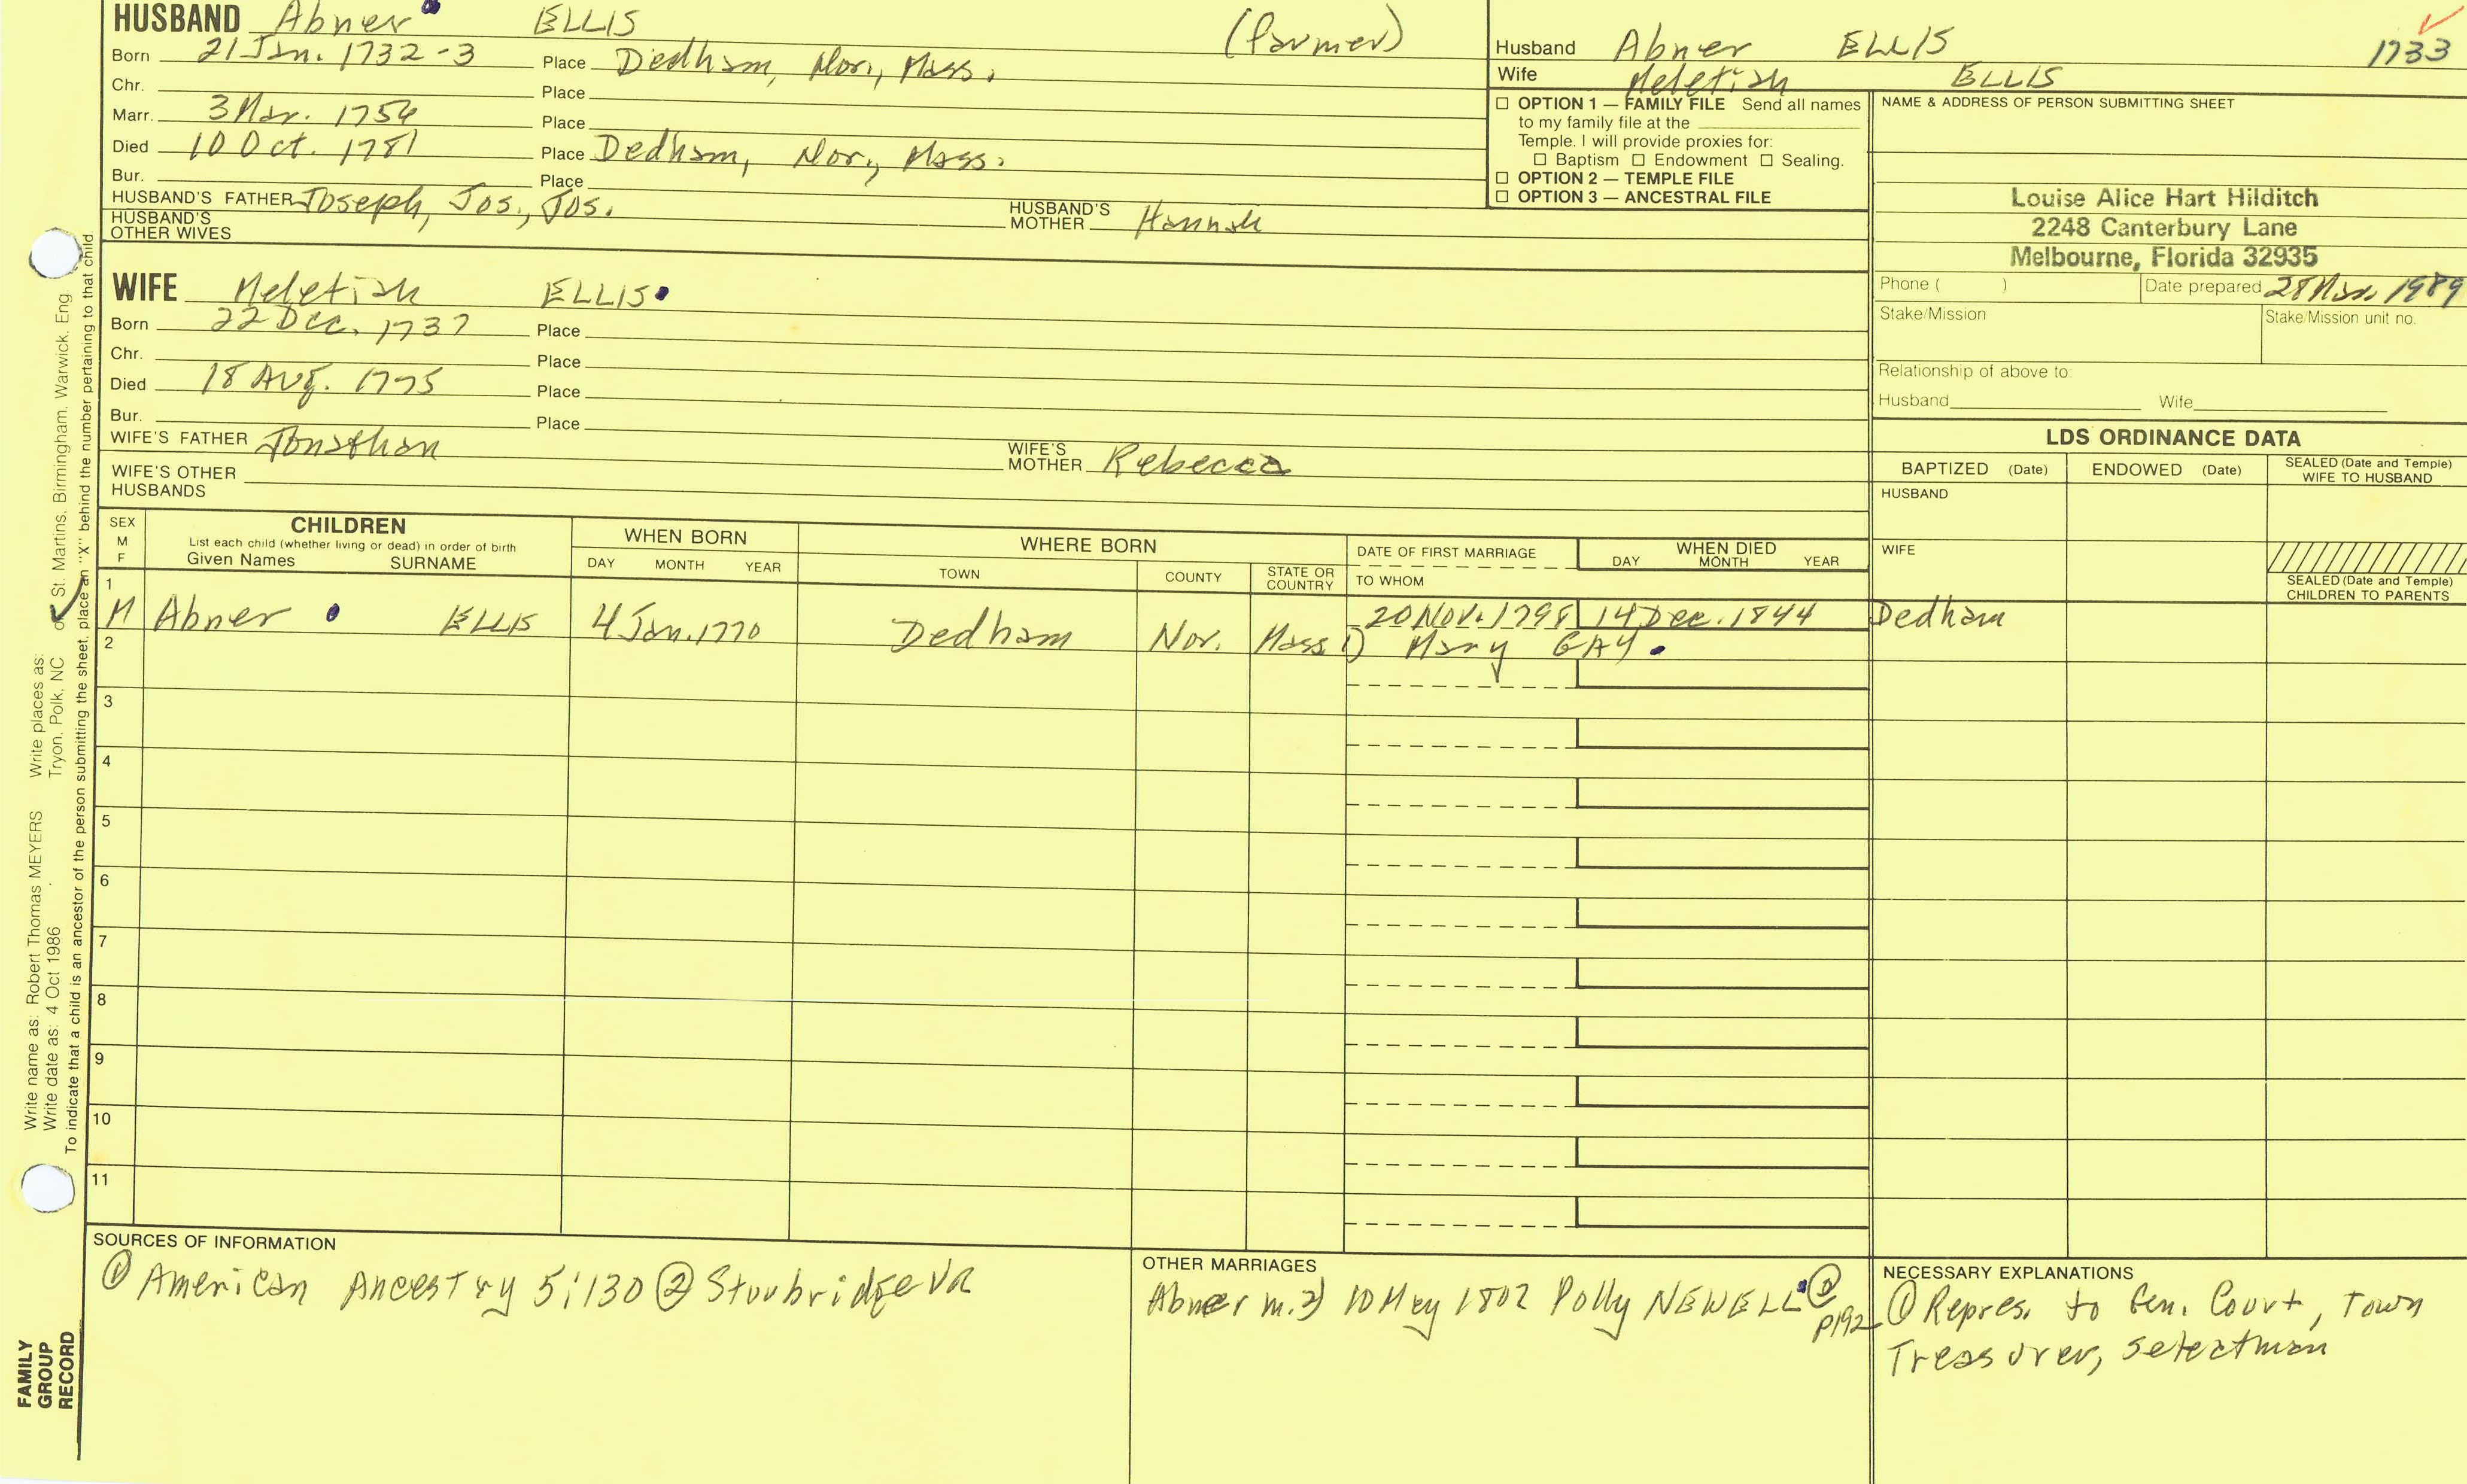 HUSBAND Abner ELLIS (farmer)
Born 21 Jan. 1732-3 Place Dedham, Nor., Mass.
Chr. Place
Marr. 3 Mar. 1756 Place
Died 10 Oct. 1781 Place Dedham, Nor., Mass.
Bur. Place
HUSBAND'S FATHER Joseph, Jos., Jos. HUSBAND'S MOTHER Hannah
HUSBAND'S OTHER WIVES
WIFE Meletiah ELLIS
Born 22 Dec. 1737 Place
Chr. Place
Died 18 Aug. 1795 Place
Bur. Place
WIFE'S FATHER Jonathan WIFE'S MOTHER Rebecca
WIFE'S OTHER HUSBANDS
Husband Abner ELLIS 1733
Wife Meletiah ELLIS
☐ OPTION 1 — FAMILY FILE Send all names
to my family file at the
Temple. I will provide proxies for:
☐ Baptism ☐ Endowment ☐ Sealing.
☐ OPTION 2 — TEMPLE FILE
☐ OPTION 3 — ANCESTRAL FILE
NAME & ADDRESS OF PERSON SUBMITTING SHEET
Louise Alice Hart Hilditch
2248 Canterbury Lane
Melbourne, Florida 32935
Phone ( ) Date prepared 28 Mar. 1989
Stake/Mission Stake/Mission unit no.
Relationship of above to:
Husband Wife
LDS ORDINANCE DATA
BAPTIZED (Date) ENDOWED (Date) SEALED (Date and Temple) WIFE TO HUSBAND
HUSBAND
WIFE
SEALED (Date and Temple) CHILDREN TO PARENTS
SEX M F
CHILDREN
List each child (whether living or dead) in order of birth
Given Names SURNAME
WHEN BORN
DAY MONTH YEAR
WHERE BORN
TOWN COUNTY STATE OR COUNTRY
DATE OF FIRST MARRIAGE
TO WHOM
WHEN DIED
DAY MONTH YEAR
1 M Abner ELLIS 4 Jan. 1770 Dedham Nor. Mass 20 Nov. 1798 14 Dec. 1844 Dedham
1) Mary GAY
2
3
4
5
6
7
8
9
10
11
SOURCES OF INFORMATION
① American Ancestry 5:130 ② Sturbridge VR
OTHER MARRIAGES
Abner m. 2) 10 May 1802 Polly NEWELL ②
P192
NECESSARY EXPLANATIONS
① Repres. to Gen. Court, Town
Treasurer, selectman
Write name as: Robert Thomas MEYERS Write places as:
Write date as: 4 Oct 1986 Tryon, Polk, NC or St. Martins, Birmingham, Warwick, Eng
To indicate that a child is an ancestor of the person submitting the sheet, place an "X" behind the number pertaining to that child.
FAMILY
GROUP
RECORD